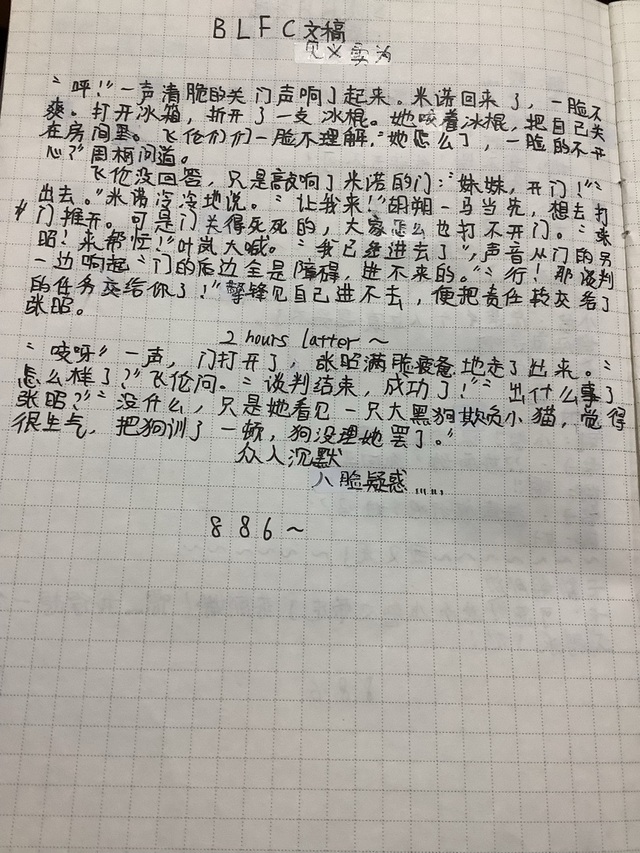 BLFC文稿
见义勇为
“呯!”一声清脆的关门声响了起来。米诺回来了,一脸不
爽。打开冰箱,折开了一支冰棍。她咬着冰棍,把自己关
在房间里。飞伦们们一脸不理解,“她怎么了,一脸的不开
心?”周楠问道。
飞伦没回答,只是敲响了米诺的门:“妹妹,开门!”“
出去。”米诺冷冷地说。“让我来!”胡朔一马当先,想去打
门推开。可是门关得死死的,大家怎么也打不开门。“张
昭!来帮忙!”叶岚大喊。“我已经进去了”,声音从门的另
一边响起“门的后边全是障碍,进不来的。”“行!那谈判
的任务交给你了!”擎锋见自己进不去,便把责任转交给了
张昭。
2 hours latter~
“咬呀”一声,门打开了,张昭满脸疲惫地走了出来。“
怎么样了?”飞伦问。“谈判结束,成功了!”“出什么事了
张昭?”“没什么,只是她看见一只大黑狗欺负小猫,觉得
很生气,把狗训了一顿,狗没理她罢了。”
众人沉默
八脸疑惑……
886~